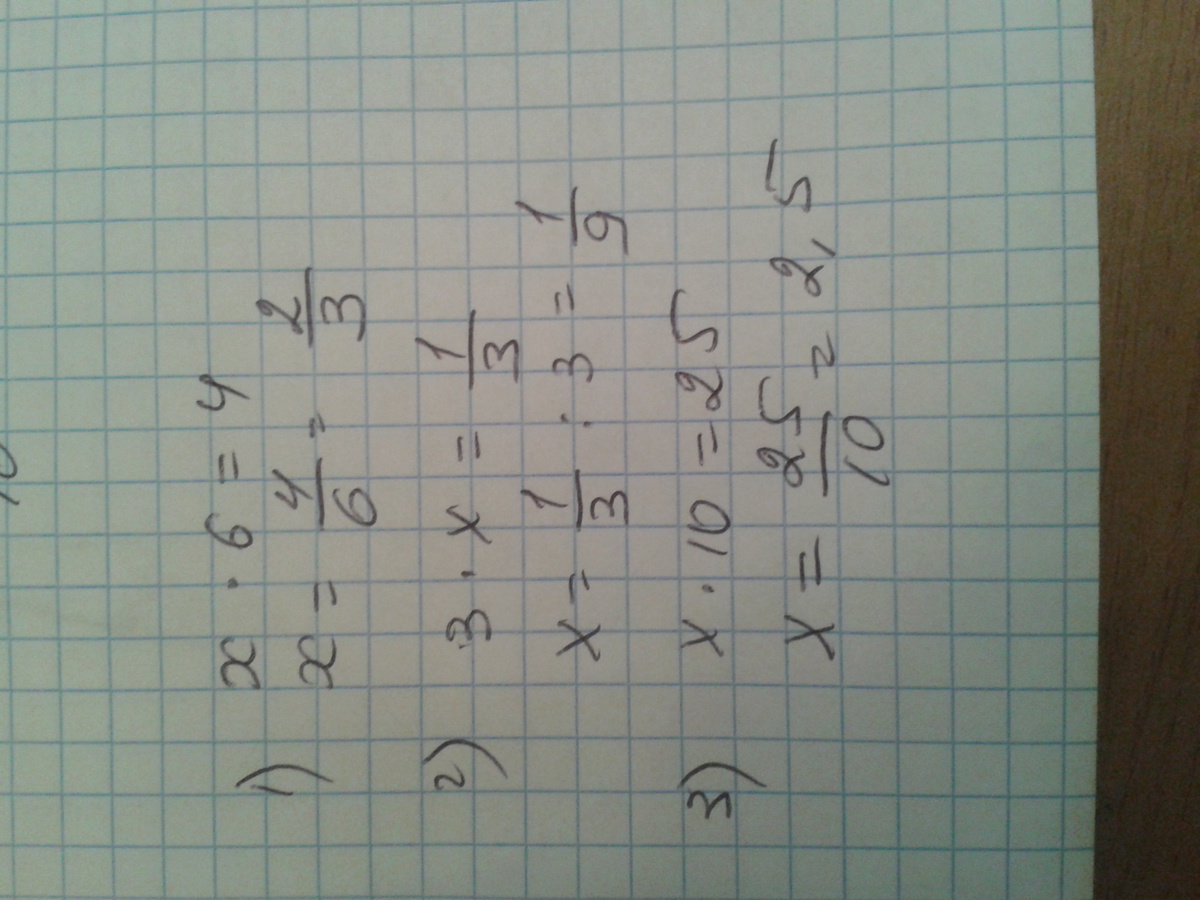 1) x · 6 = 4
x = 4/6 = 2/3
2) 3 · x = 1/3
x = 1/3 : 3 = 1/9
3) x · 10 = 25
x = 25/10 = 2,5